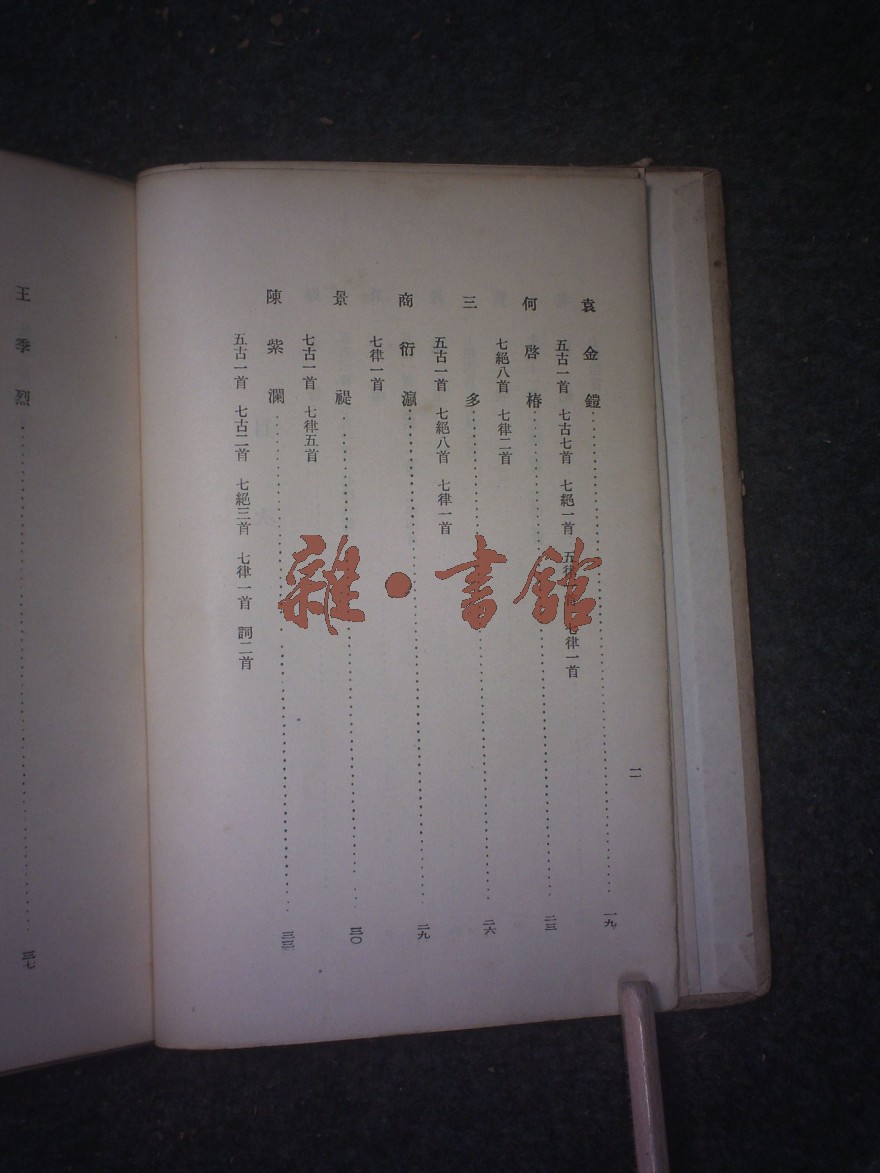 袁金鎧 一九
五古一首 七古七首 七絕一首 五律 七律一首
何啓椿 二三
七絕八首 七律二首
三多 二六
五古一首 七絕八首 七律一首
商衍瀛 二九
七律一首
景禔 三〇
七古一首 七律五首
陳紫瀾 三三
五古一首 七古二首 七絕三首 七律一首 詞二首
二
王季烈 三七
雜·書館